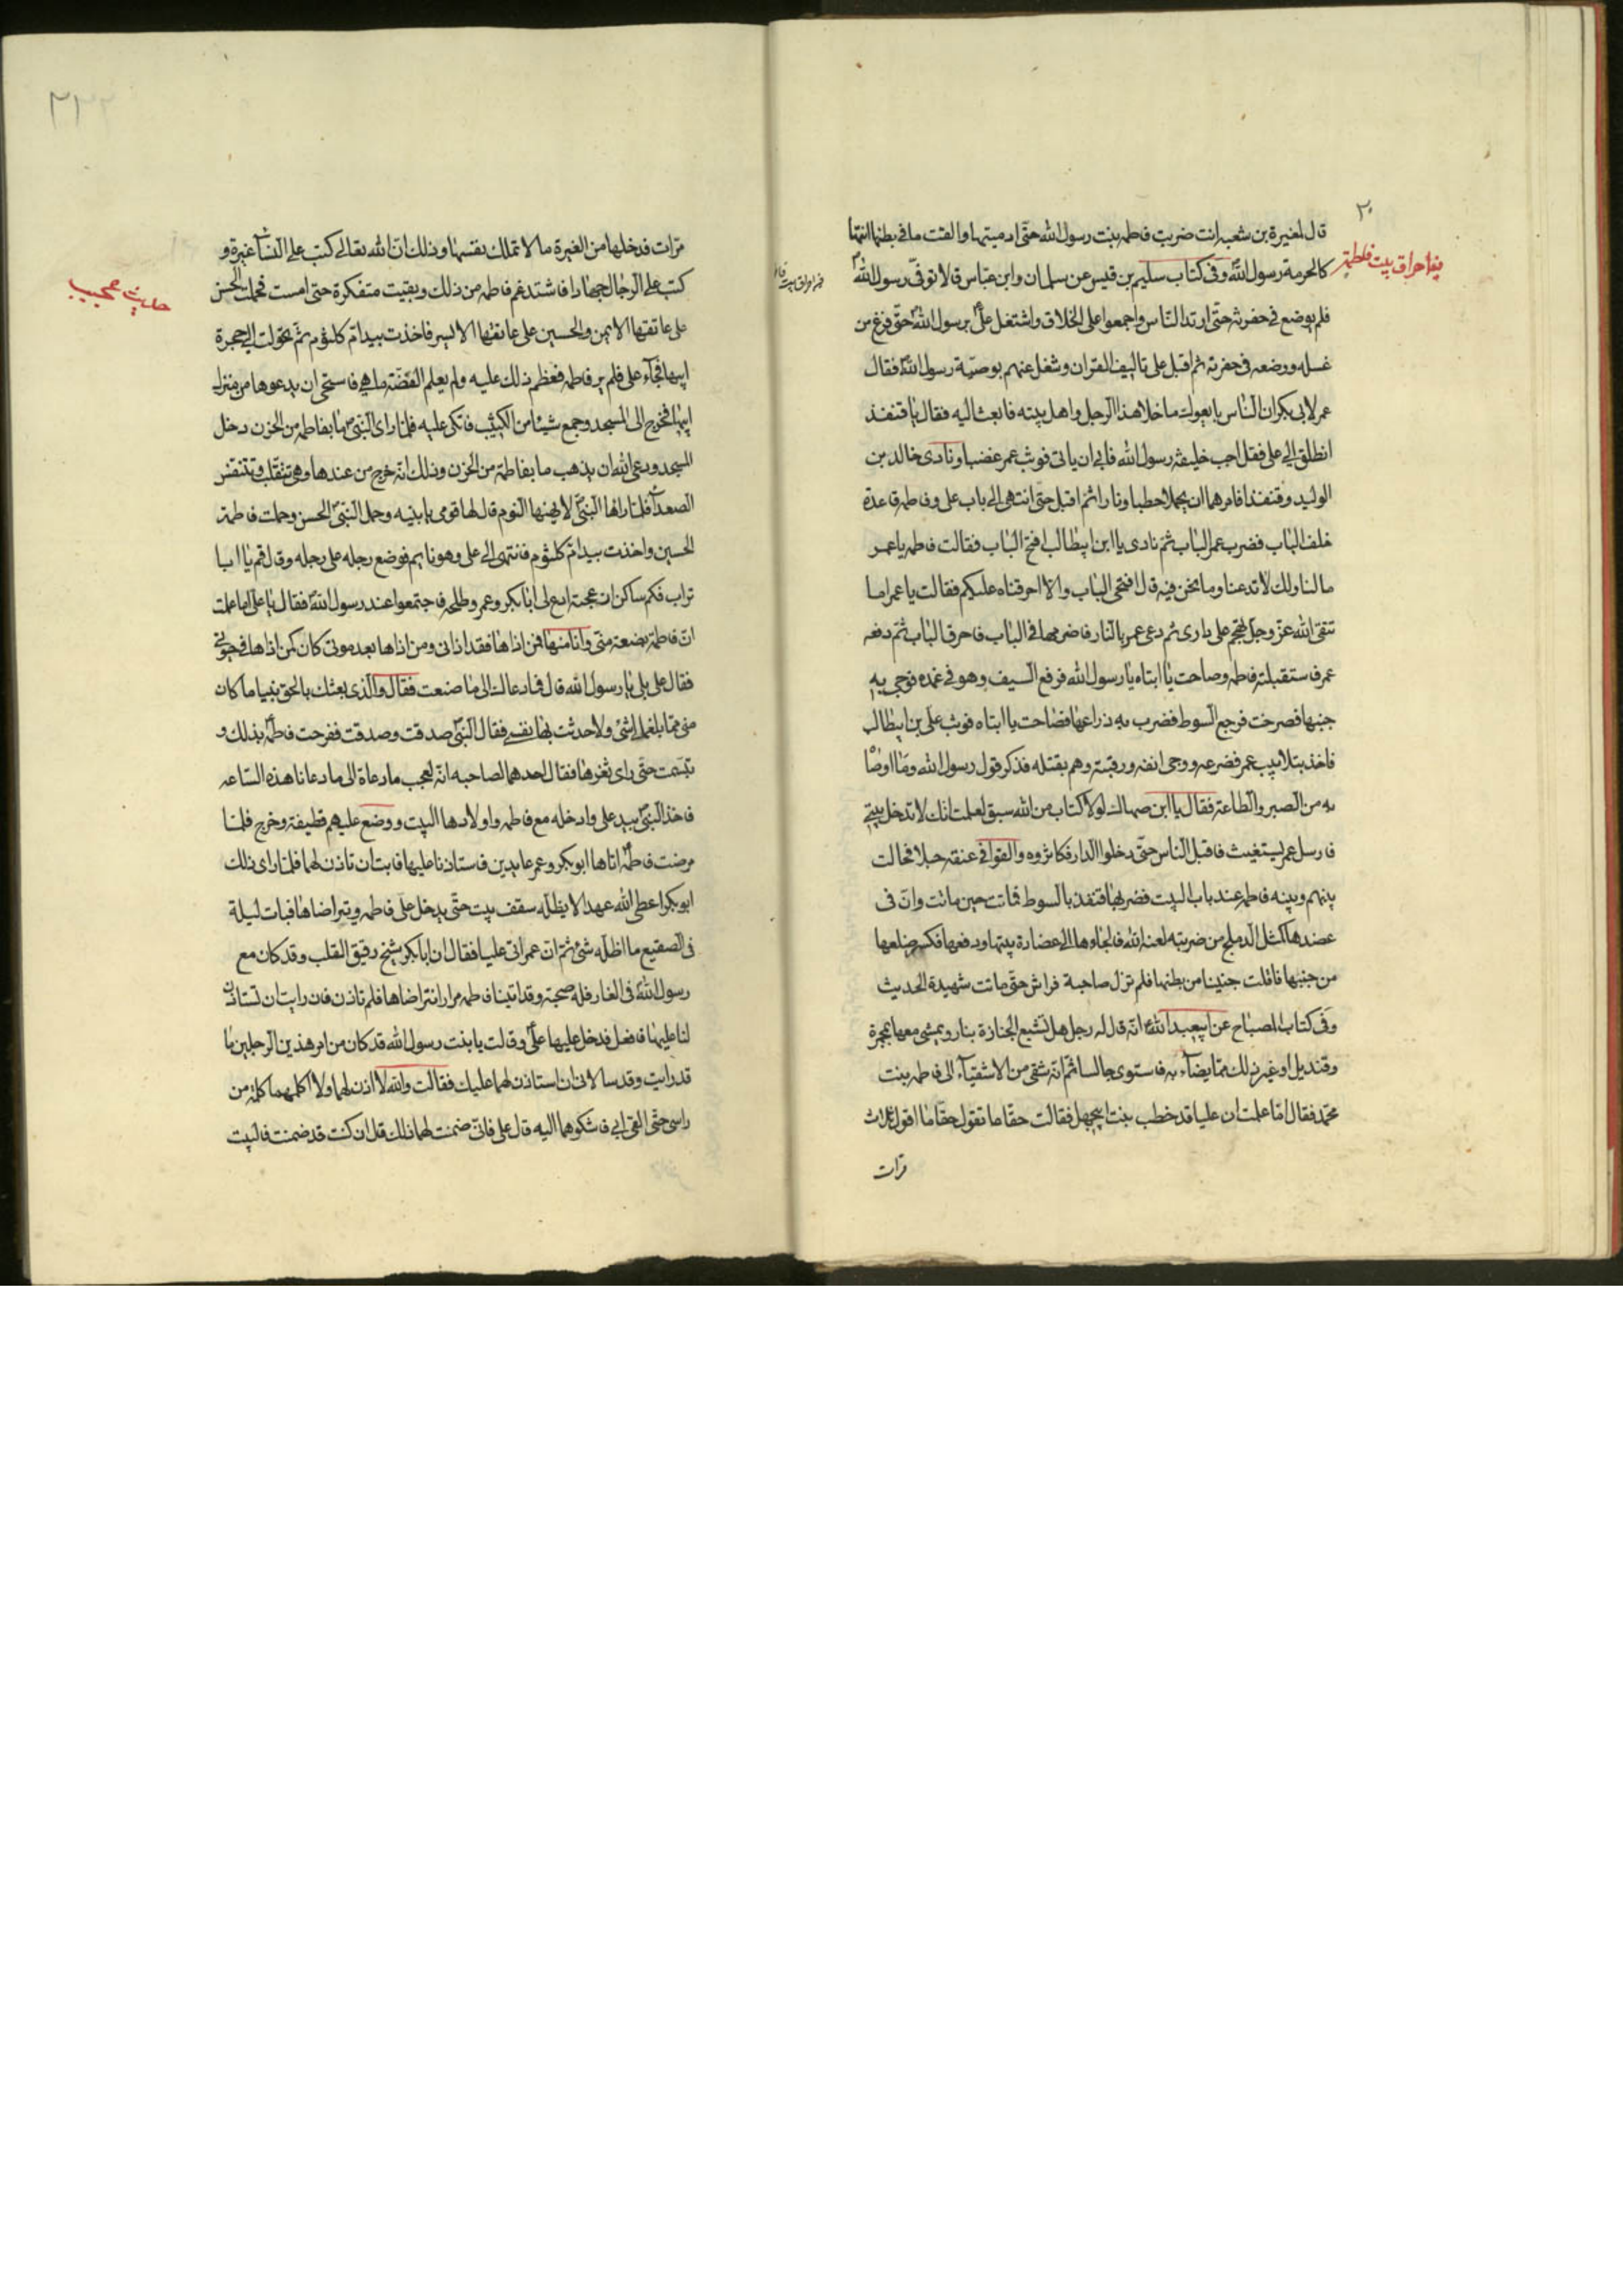 ٢٠
قال لمغيرة بن شعبه انت ضربت فاطمه بنت رسول الله حتى ادميتها والقت ما في بطنها انتهاكا
لحرمة رسول الله وفى كتاب سليم بن قيس عن سلمان وابن عباس قالا توفى رسول الله
فلم يوضع في حفرته حتى ارتد الناس واجمعوا على الخلاف واشتغل على برسول الله حتى فرغ من
غسله ووضعه فى حفرته ثم اقبل على تاليف القران وشغل عنهم بوصية رسول الله فقال
عمر لابى بكر ان الناس بايعوك ما خلا هذا الرجل واهل بيته فابعث اليه فقال يا قنفذ
انطلق الى على فقل اجب خليفة رسول الله فابى ان ياتى فوثب عمر غضبا ونادى خالد بن
الوليد وقنفذا فامرهما ان يحملا حطبا ونارا ثم اقبل حتى انتهى الى باب على وفاطمه قاعدة
خلف الباب فضرب عمر الباب ثم نادى يا ابن ابيطالب افتح الباب فقالت فاطمه يا عمر
ما لنا ولك لا تدعنا وما نحن فيه قال افتحى الباب والا احرقناه عليكم فقالت يا عمر اما
تتقى الله عز وجل تهجم على دارى ثم دعى عمر بالنار فاضرمها فى الباب فاحرق الباب ثم دفعه
عمر فاستقبلته فاطمه وصاحت يا ابتاه يا رسول الله فرفع السيف وهو فى غمده فوجى به
جنبها فصرخت فرجع السوط فضرب به ذراعها فصاحت يا ابتاه فوثب على بن ابيطالب
فاخذ بتلابيب عمر فصرعه ووجى انفه ورقبته وهم بقتله فذكر قول رسول الله وما اوصاه
به من الصبر والطاعة فقال يا ابن صهاك لولا كتاب من الله سبق لعلمت انك لا تدخل بيتى
فارسل عمر يستغيث فاقبل الناس حتى دخلوا الدار فكاثروه والقوا فى عنقه حبلا فحالت
بينهم وبينه فاطمه عند باب البيت فضربها قنفذ بالسوط فماتت حين ماتت وان فى
عضدها كمثل الدملج من ضربته لعنه الله فالجاءها الى عضادة بيتها ودفعها فكسر ضلعها
من جنبها فالقت جنينا من بطنها فلم تزل صاحبة فراش حتى ماتت شهيدة الحديث
وفى كتاب المصباح عن ابيعبدالله انه قال له رجل هل تشيع الجنازة بنار ويمشى معها بمجمرة
وقنديل او غير ذلك مما يضاء به فاستوى جالسا ثم انه شقى من الاشقياء الى فاطمه بنت
محمد فقال اما علمت ان عليا قد خطب بنت ابيجهل فقالت حقا ما تقول حقا ما اقول ثلاث
مرات
احراق بيت فاطمة
مرات فدخلها من الغيرة ما لا تملك نفسها وذلك ان الله تعالى كتب على النساء غيرة و
كتب على الرجال جهادا فاشتد غم فاطمه من ذلك وبقيت متفكرة حتى امست فحملت الحسن
على عاتقها الايمن والحسين على عاتقها الايسر فاخذت بيد ام كلثوم ثم تحولت الى حجرة
ابيها فجاء على فلم ير فاطمه فعظم ذلك عليه ولم يعلم القصة ما هى فاستحى ان يدعوها من منزل
ابيها فخرج الى المسجد وجمع شيئا من الكثيب فاتكى عليه فلما راى النبى ما بفاطمه من الحزن دخل
المسجد ودعى الله ان يذهب ما بفاطمة من الحزن وذلك انه خرج من عندها وهى تتقلب وتتنفس
الصعداء فلما راها النبى لا يهنها النوم قال لها قومى يا بنيه وحمل النبى الحسن وحملت فاطمة
الحسين واخذت بيد ام كلثوم فانتهى الى على وهو نايم فوضع رجله على رجله وقال قم يا ابا
تراب فكم ساكن ازعجته ادع لى ابابكر وعمر وطلحه فاجتمعوا عند رسول الله فقال يا على اما علمت
ان فاطمة بضعة منى وانا منها فمن اذاها فقد اذانى ومن اذاها بعد موتى كان كمن اذاها فى حيوتى
فقال على بلى يا رسول الله قال فما دعاك الى ما صنعت فقال والذى بعثك بالحق نبيا ما كان
منى مما بلغها شئ ولا حدثت بها نفسى فقال النبى صدقت وصدقت ففرحت فاطمة بذلك و
تبسمت حتى راى ثغرها فقال احدهما لصاحبه انه لعجب ما دعاه الى ما دعانا هذه الساعه
فاخذ النبى بيد على وادخله مع فاطمه واولادها البيت ووضع عليهم قطيفة وخرج فلما
مرضت فاطمة اتاها ابوبكر وعمر عايدين فاستاذنا عليها فابت ان تاذن لهما فلما راى ذلك
ابوبكر اعطى الله عهدا لا يظله سقف بيت حتى يدخل على فاطمه ويتراضاها فبات ليلة
فى الصقيع ما اظله شئ ثم ان عمر اتى عليا فقال ان ابابكر شيخ رقيق القلب وقد كان مع
رسول الله فى الغار فله صحبة وقد اتينا فاطمه مرارا نتراضاها فلم تاذن فان رايت ان تستاذن
لنا عليها فافعل فدخل عليها على وقالت يا بنت رسول الله قد كان من امر هذين الرجلين ما
قد رايت وقد سالانى ان استاذن لهما عليك فقالت والله لا اذن لهما ولا اكلمهما كلمة من
راسى حتى القى ابى فاشكوهما اليه قال على فانى ضمنت لهما ذلك قال ان كنت قد ضمنت فالبيت
حديث عجيب